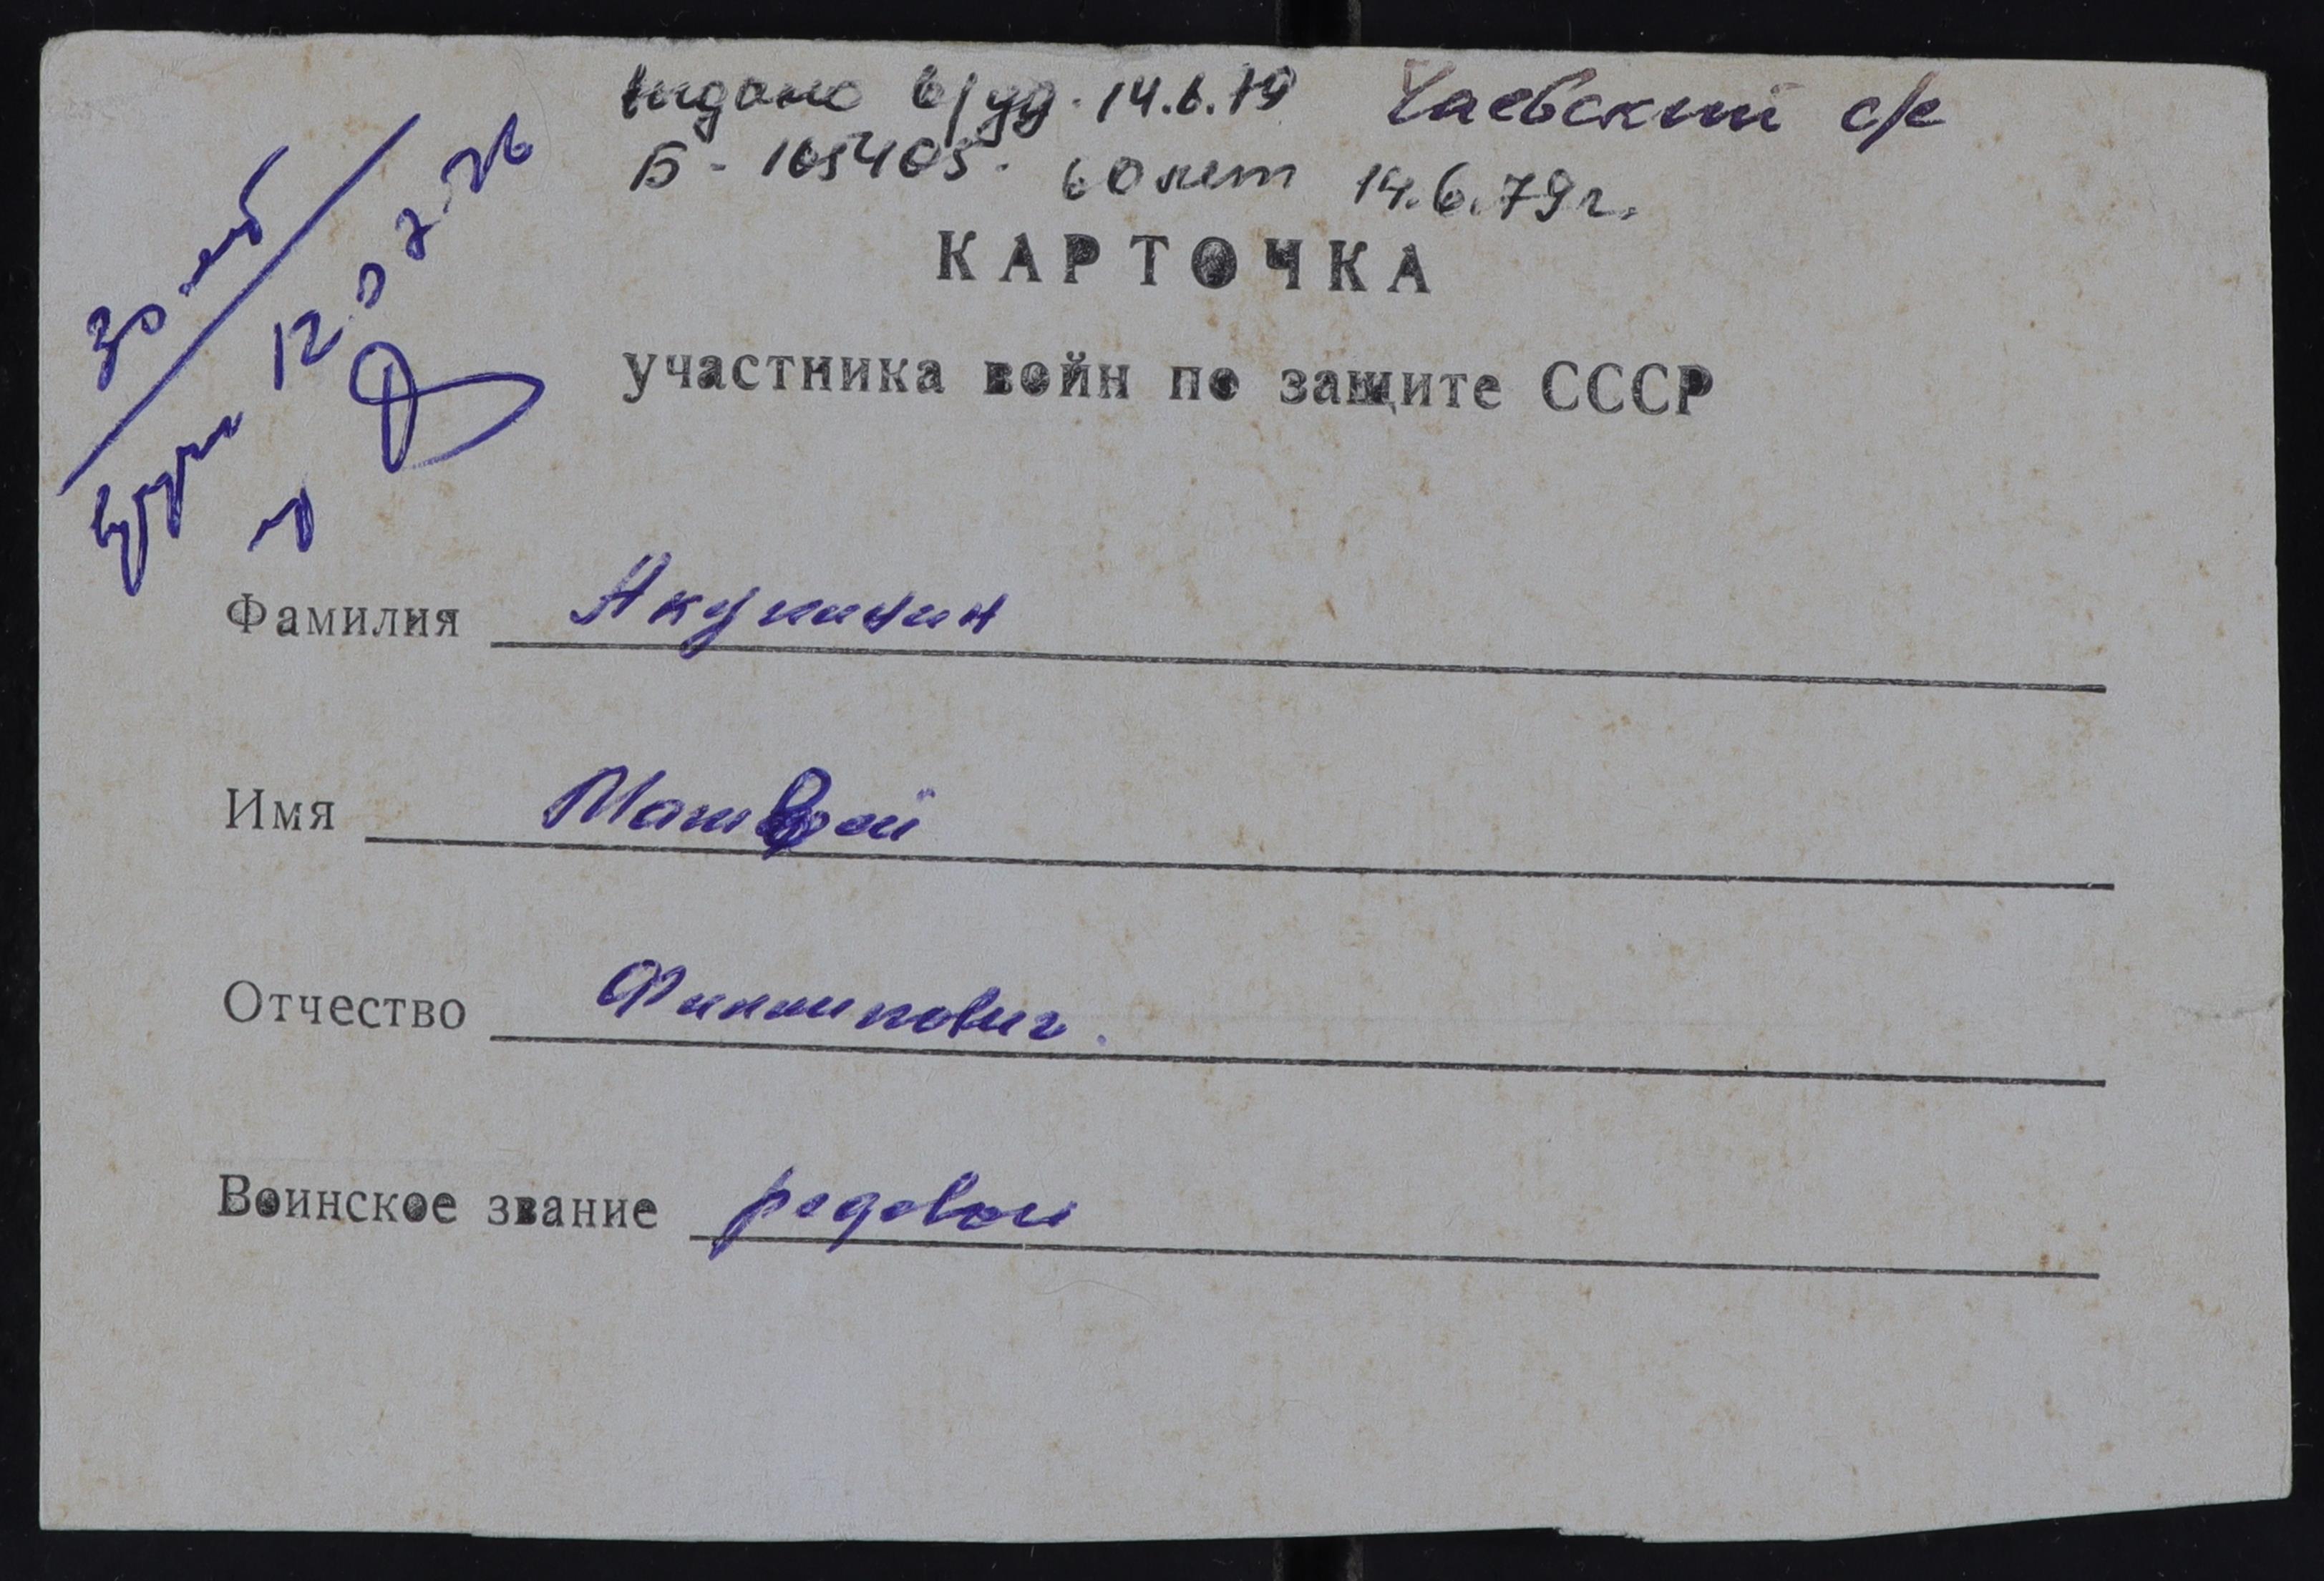 выдано в/уд. 14.6.79 Чаевский с/с
Б - 165405. 60 лет 14.6.79 г.
30 лет
12
КАРТОЧКА
участника войн по защите СССР
Фамилия Акушинин
Имя Матвей
Отчество Филиппович.
Воинское звание рядовой